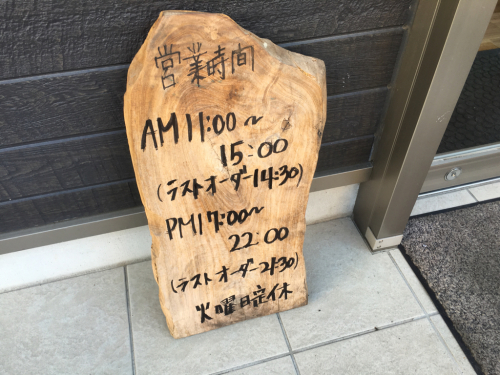 営業時間
AM11:00~
15:00
(ラストオーダー14:30)
PM17:00~
22:00
(ラストオーダー21:30)
火曜日定休